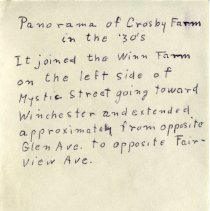 Panorama of Crosby Farm
in the '30's
It joined the Winn Farm
on the left side of
Mystic Street going toward
Winchester and extended
approximately from opposite
Glen Ave. to opposite Fair-
view Ave.